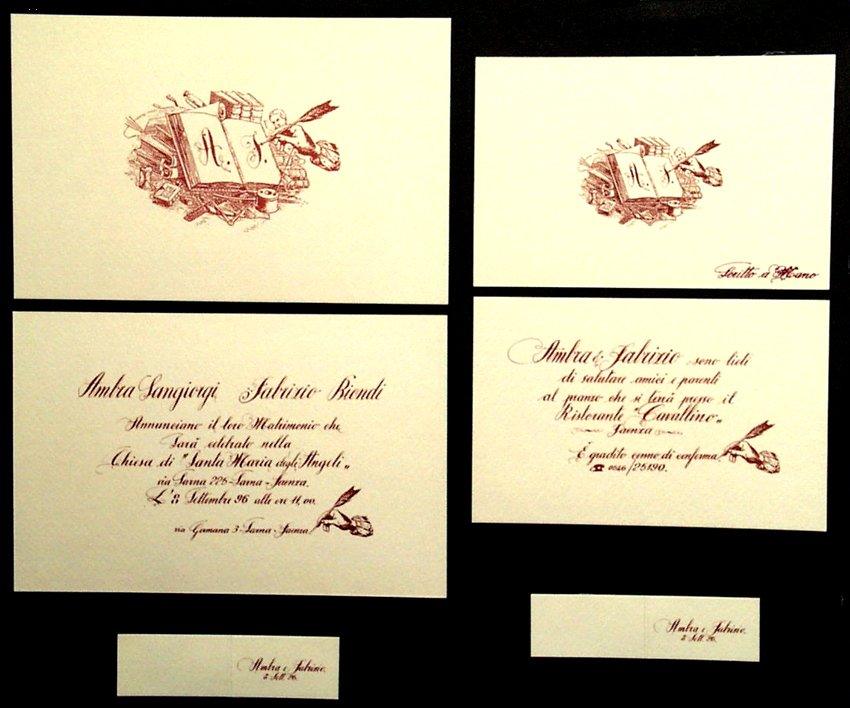 A. F.
Ambra Sangiorgi e Fabrizio Biondi
Annunciano il loro Matrimonio che
Sarà celebrato nella
Chiesa di "Santa Maria degli Angeli"
via Sarna 225 - Sarna - Faenza.
L'8 Settembre 96 alle ore 11,00.
3 - Sarna - Faenza
Ambra e Fabrizio.
8 Sett. 96.
A. F.
Scritto a Mano
Ambra & Fabrizio sono lieti
di salutare amici e parenti
al pranzo che si terrà presso il
Ristorante "Cavallino"
Faenza
È gradito cenno di conferma
☎ 0546/25190.
Ambra e Fabrizio.
8 Sett. 96.